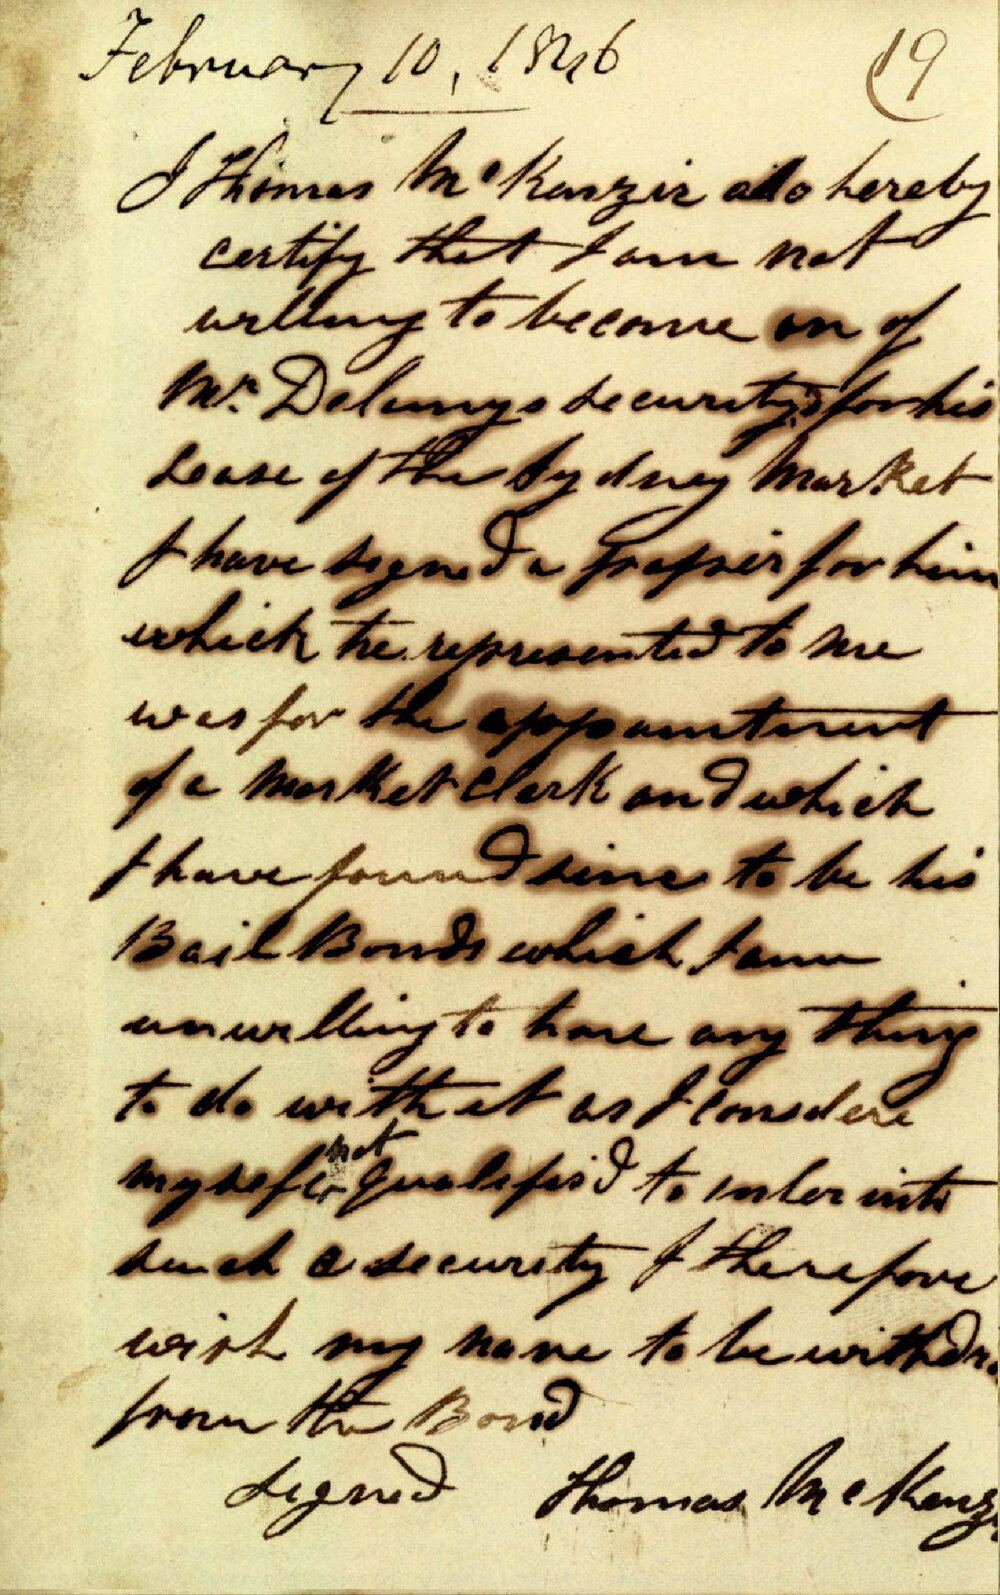 February 10, 1846
19
I Thomas McKenzie do hereby
certify that I am not
willing to become on of
Mr. Delanys securitys for his
Lease of the Sydney Market
I have signed a paper for him
which he represented to me
was for the appointment
of a Market Clerk and which
I have found since to be his
Bail Bonds which I am
unwilling to have any thing
to do with it as I considere
myself not qualified to enter into
such a security I therefore
wish my name to be withdra
from the Bond
signed Thomas McKenz